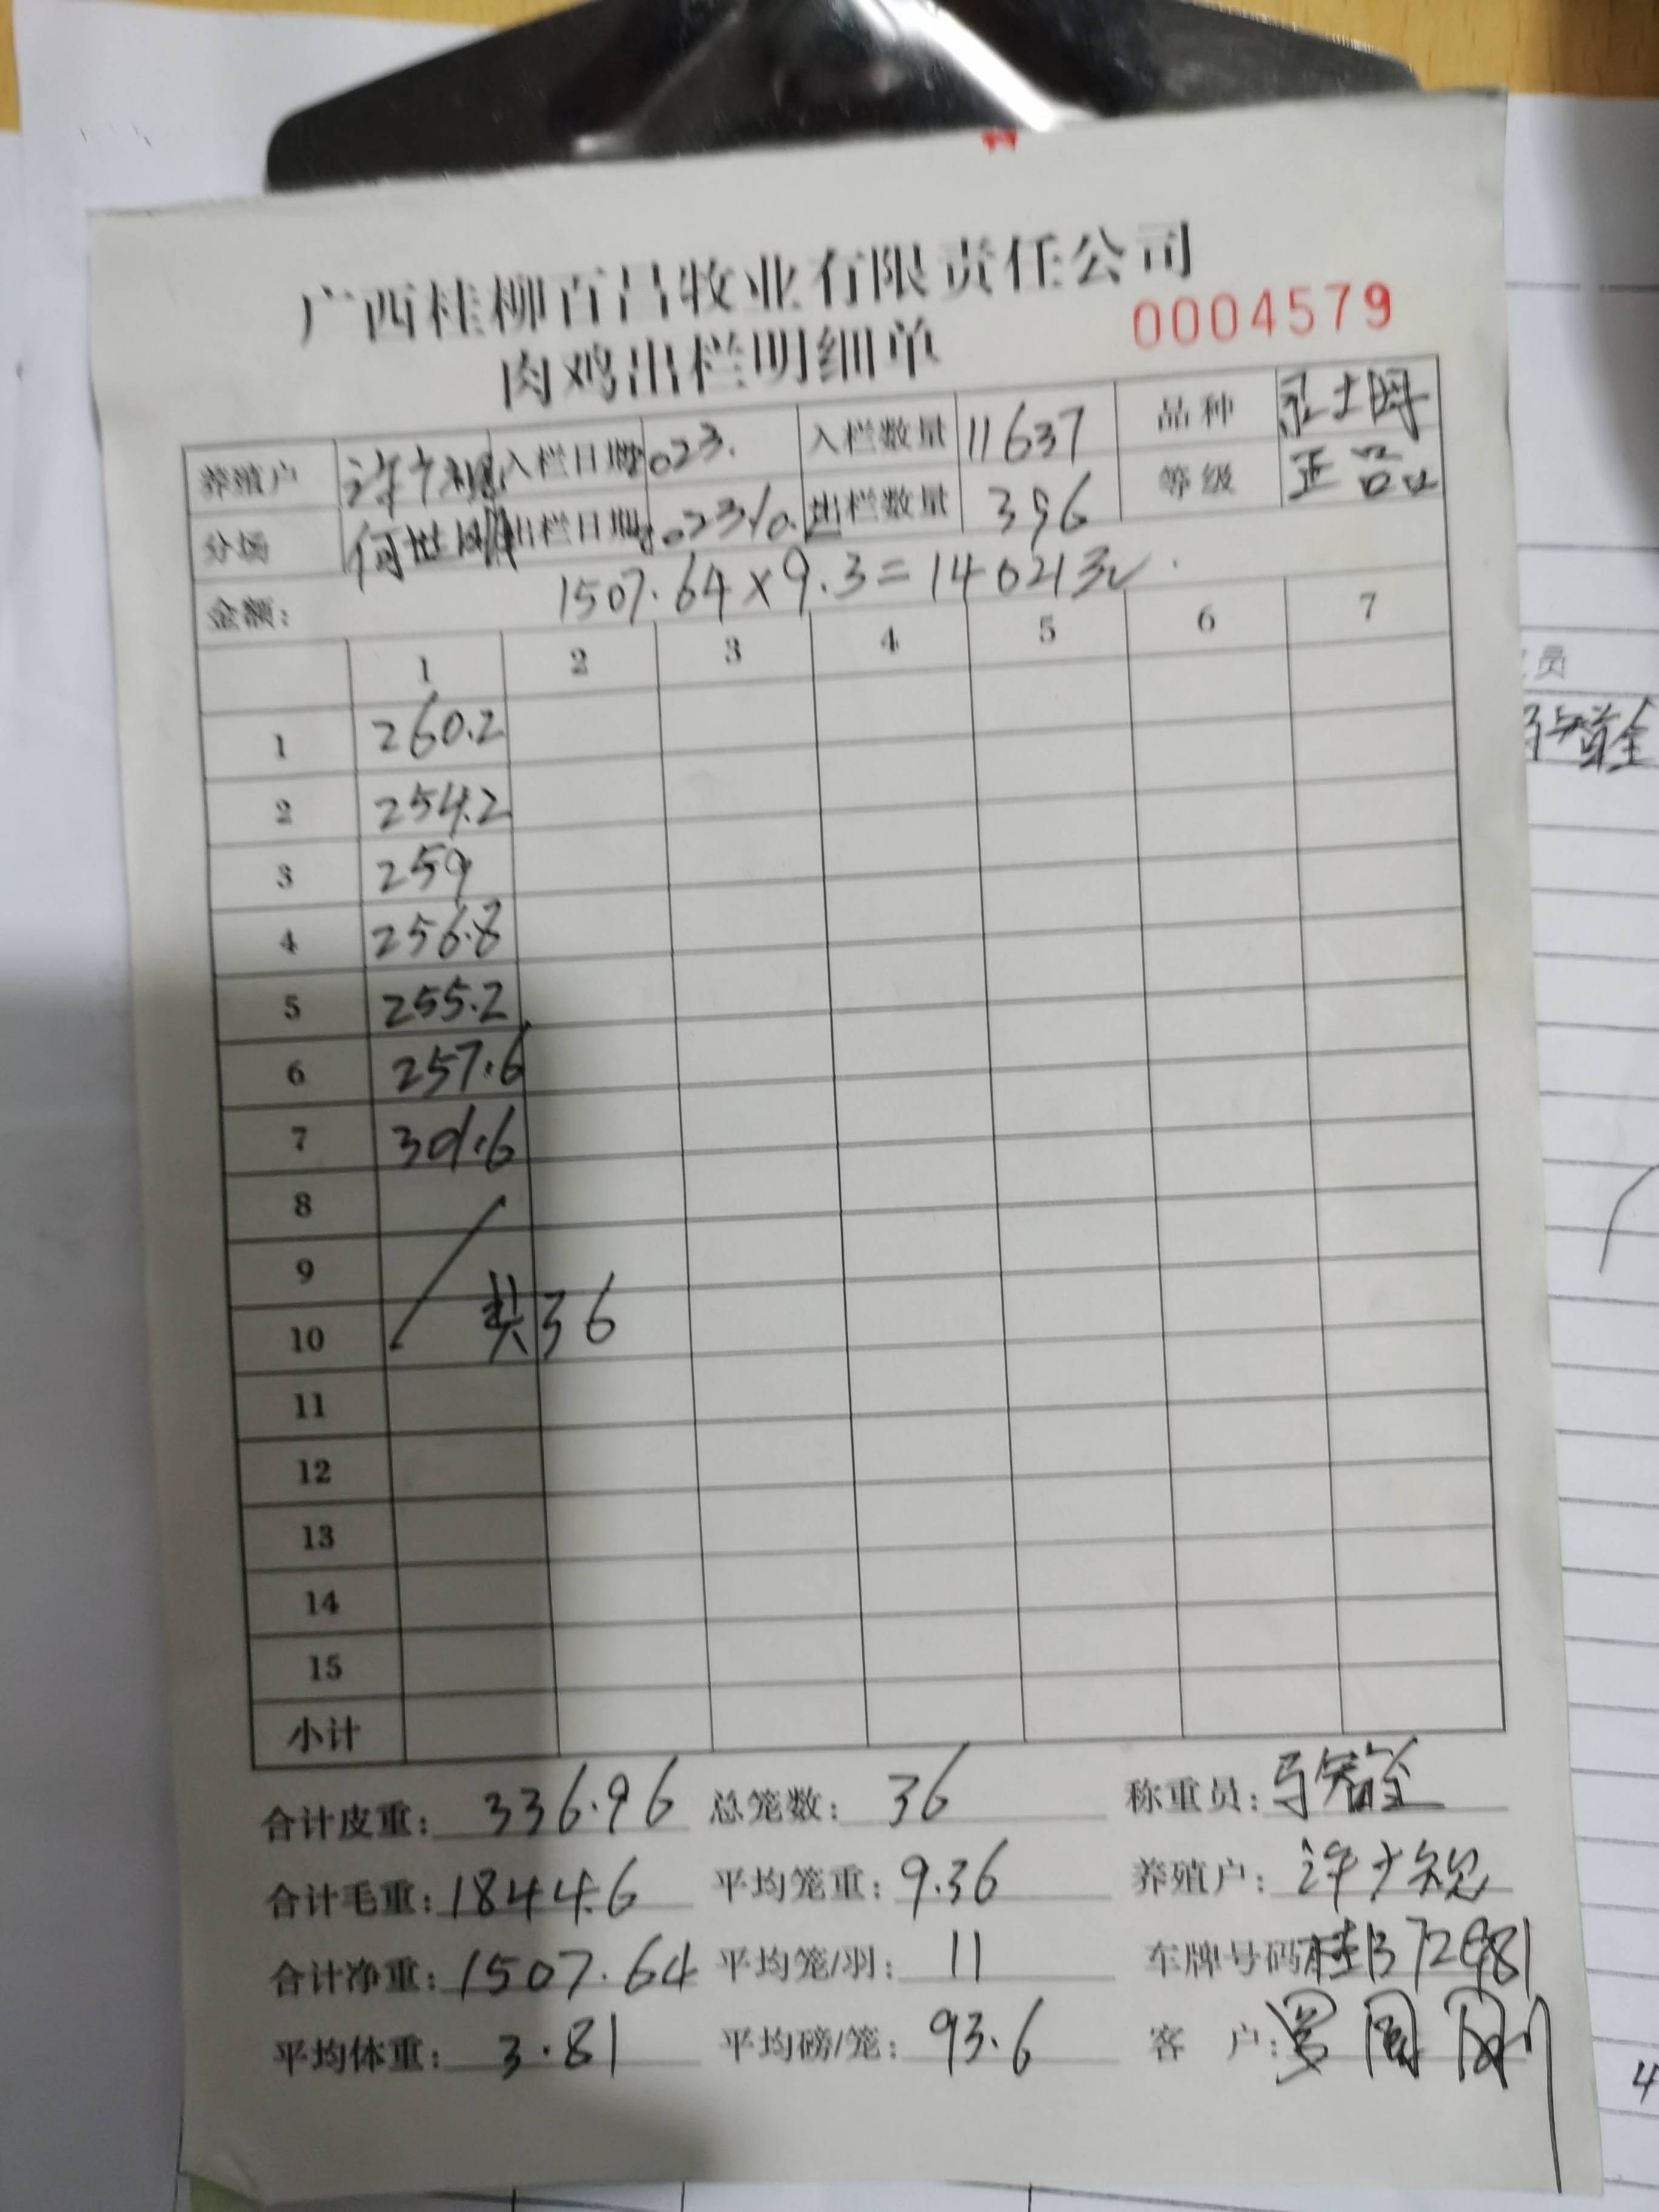 广西桂柳百昌牧业有限责任公司
肉鸡出栏明细单 0004579
养殖户 入栏日期 2023. 入栏数量 11637 品种
分场 何世明 出栏日期 2023.10. 出栏数量 396 等级 正品
金额: 1507.64×9.3=14021元
1 2 3 4 5 6 7
1 260.2
2 254.2
3 259
4 256.8
5 255.2
6 257.6
7 301.6
8
9
10 共36
11
12
13
14
15
小计
合计皮重: 336.96 总笼数: 36 称重员:
合计毛重: 1844.6 平均笼重: 9.36 养殖户:
合计净重: 1507.64 平均笼/羽: 11 车牌号码:
平均体重: 3.81 平均磅/笼: 93.6 客 户:
员
4